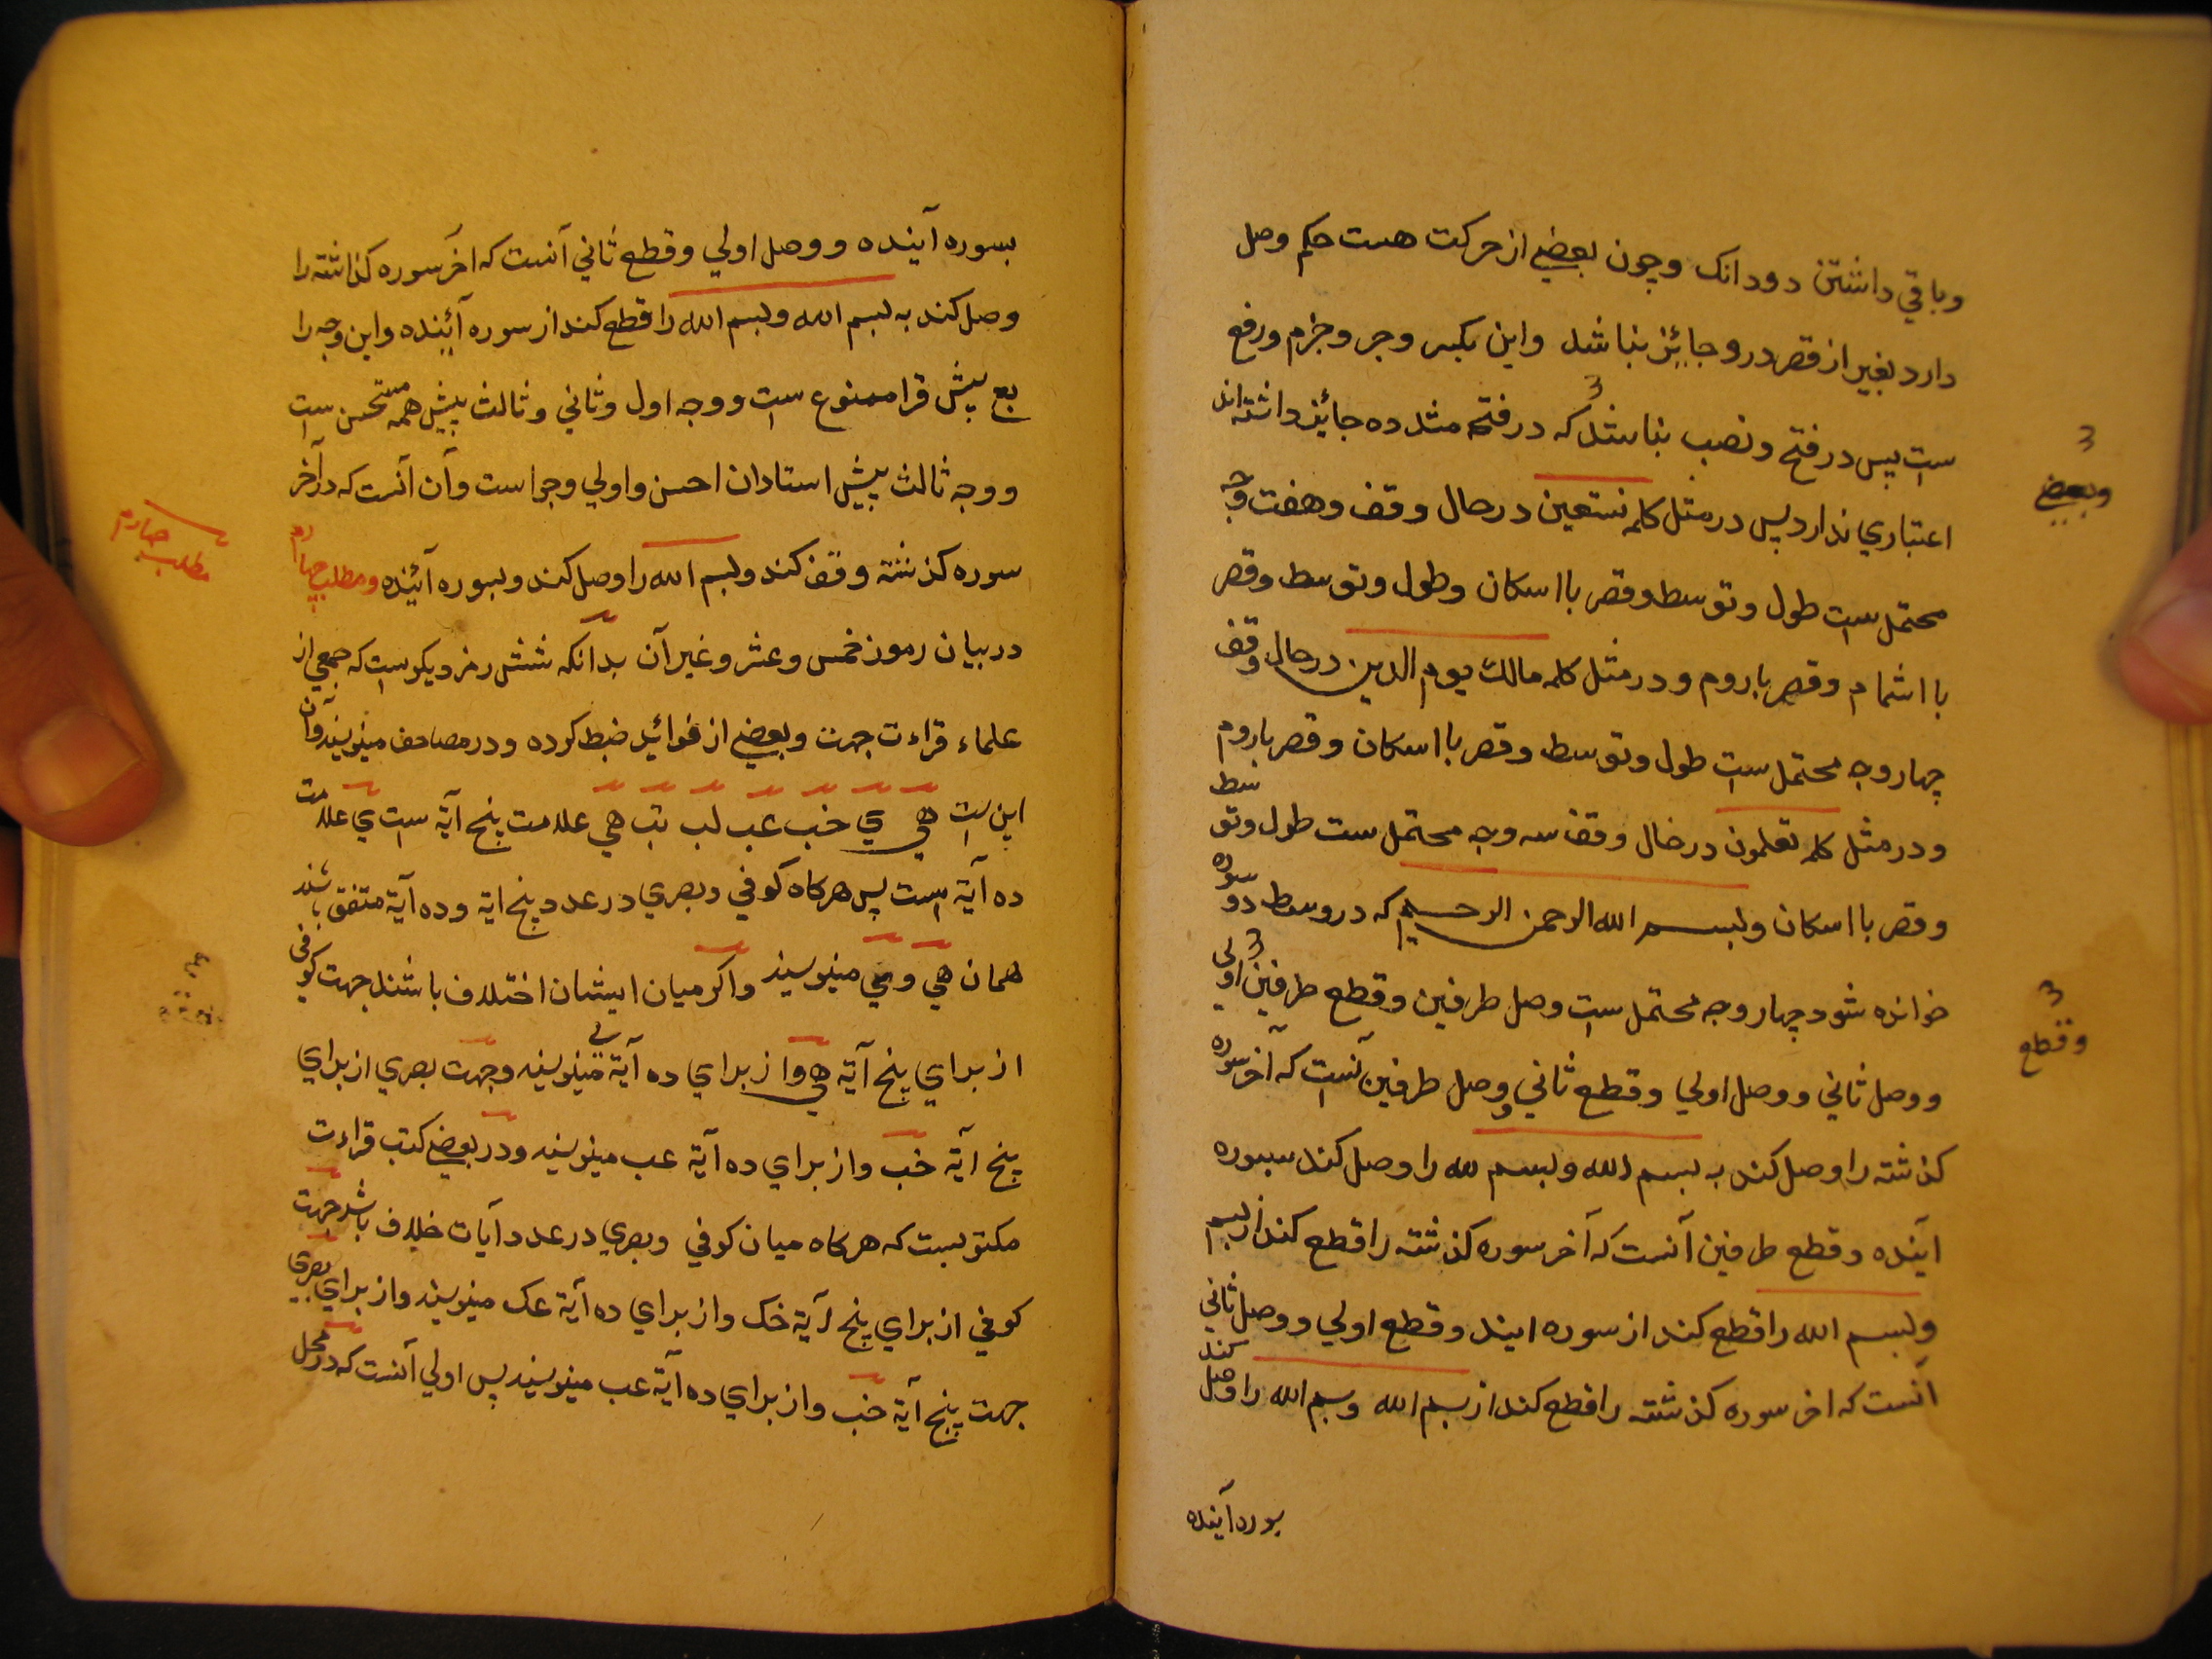 وباقي داشتن دودانك وچون بعضي از حركت هست حكم وصل
دارد بغير از قصر درو جايز نباشد واين بكسر وجر وجزم ورفع
ست پس در فتح ونصب نباشد كه در فتحه مثد ده جائز داشته اند
اعتباري ندارد پس در مثل كلمه نستعين در حال وقف وهفت وجه
محتمل ست طول وتوسط وقصر با اسكان وطول وتوسط وقصر
با اشمام وقصر با روم ودر مثل كلمه مالك يوم الدين در حال وقف
چهار وجه محتمل ست طول وتوسط وقصر با اسكان وقصر با روم
ودر مثل كلمه تعلمون در حال وقف سه وجه محتمل ست طول وتوسط
وقصر با اسكان وبسم الله الرحمن الرحيم كه در وسط دو سوره
خوانده شود چهار وجه محتمل ست وصل طرفين وقطع طرفين اولي
ووصل ثاني ووصل اولي وقطع ثاني ووصل طرفين آنست كه آخر سوره
كذشته را وصل كند به بسم الله وبسم لله را وصل كند بسوره
آينده وقطع طرفين آنست كه آخر سوره كذشته را قطع كند از بسم
وبسم الله را قطع كند از سوره ايند وقطع اولي ووصل ثاني
آنست كه اخر سوره كذشته را قطع كند از بسم الله وبسم الله را وصل كند
بوره آينده
وبعضي
وقطع
بسوره آينده ووصل اولي وقطع ثاني آنست كه اخر سوره كذاشته را
وصل كند به بسم الله وبسم الله را قطع كند از سوره آئينده واين وجه را
بع پيش قرا ممنوع ست ووجه اول وثاني وثالث پيش همه مستحسن ست
ووجه ثالث پيش استادان احسن واولي وجوا ست وآن آنست كه در آخر
سوره كذشته وقف كند وبسم الله را وصل كند وبسوره آئينده ومطلب چهارم
در بيان رموز خمس وعشر وغير آن بدانكه شش رمز ديكر ست كه جمعي از
علماء قراءت جهت وبعضي از فوائد ضبط كرده ودر مصاحف مينويسند وآن
اين ست هي ي خب عب لب تب هي علامت پنج آية ست ي علامت
ده آية است پس هركاه كوفي وبصري در عدد پنج اية وده آية متفق باشند
همان هي وي مينويسند واكر ميان ايشان اختلاف باشند جهت كوفي
از براي پنج آية هي واز براي ده آية ي مينويسند وجهت بصري از براي
پنج آية خب واز براي ده آية عب مينويسند ودر بعضي كتب قراءت
مكتوبست كه هركاه ميان كوفي وبصري در عدد آيات خلاف باشد جهت
كوفي از براي پنج آية خك واز براي ده آية عك مينويسند واز براي بصري
جهت پنج آية خب واز براي ده آية عب مينويسند پس اولي آنست كه در محل
مطلب چهارم